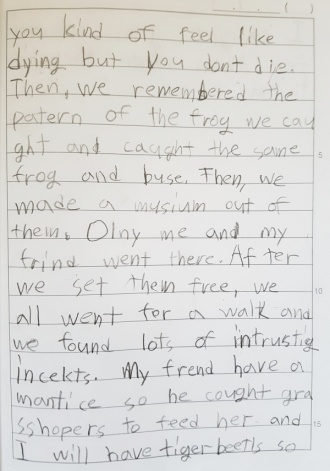 you kind of feel like
dying but you dont die.
Then, we remembered the
patern of the frog we cau
ght and caught the same
frog and buse. Then, we
made a musium out of
them. Olny me and my
frind went there. Af ter
we set them free, we
all went for a walk and
we found lots of intrustig
incekts. My frend have a
mantice so he cought gra
sshopers to feed her and
I will have tiger beetls so
5
10
15
( )